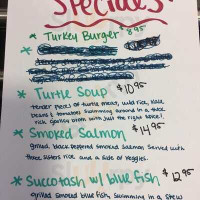 Specials
* Turkey Burger 8.95
* Turtle Soup $10.95
tender pieces of turtle meat, wild rice, kale
beans & tomatoes swimming around in a thick
rich garlicy broth with just the right spice!
* Smoked Salmon $14.95
grilled black peppered smoked salmon served with
three sisters rice and a side of veggies.
* Succotash w/ blue fish $12.95
grilled smoked blue fish, swimming in a stew